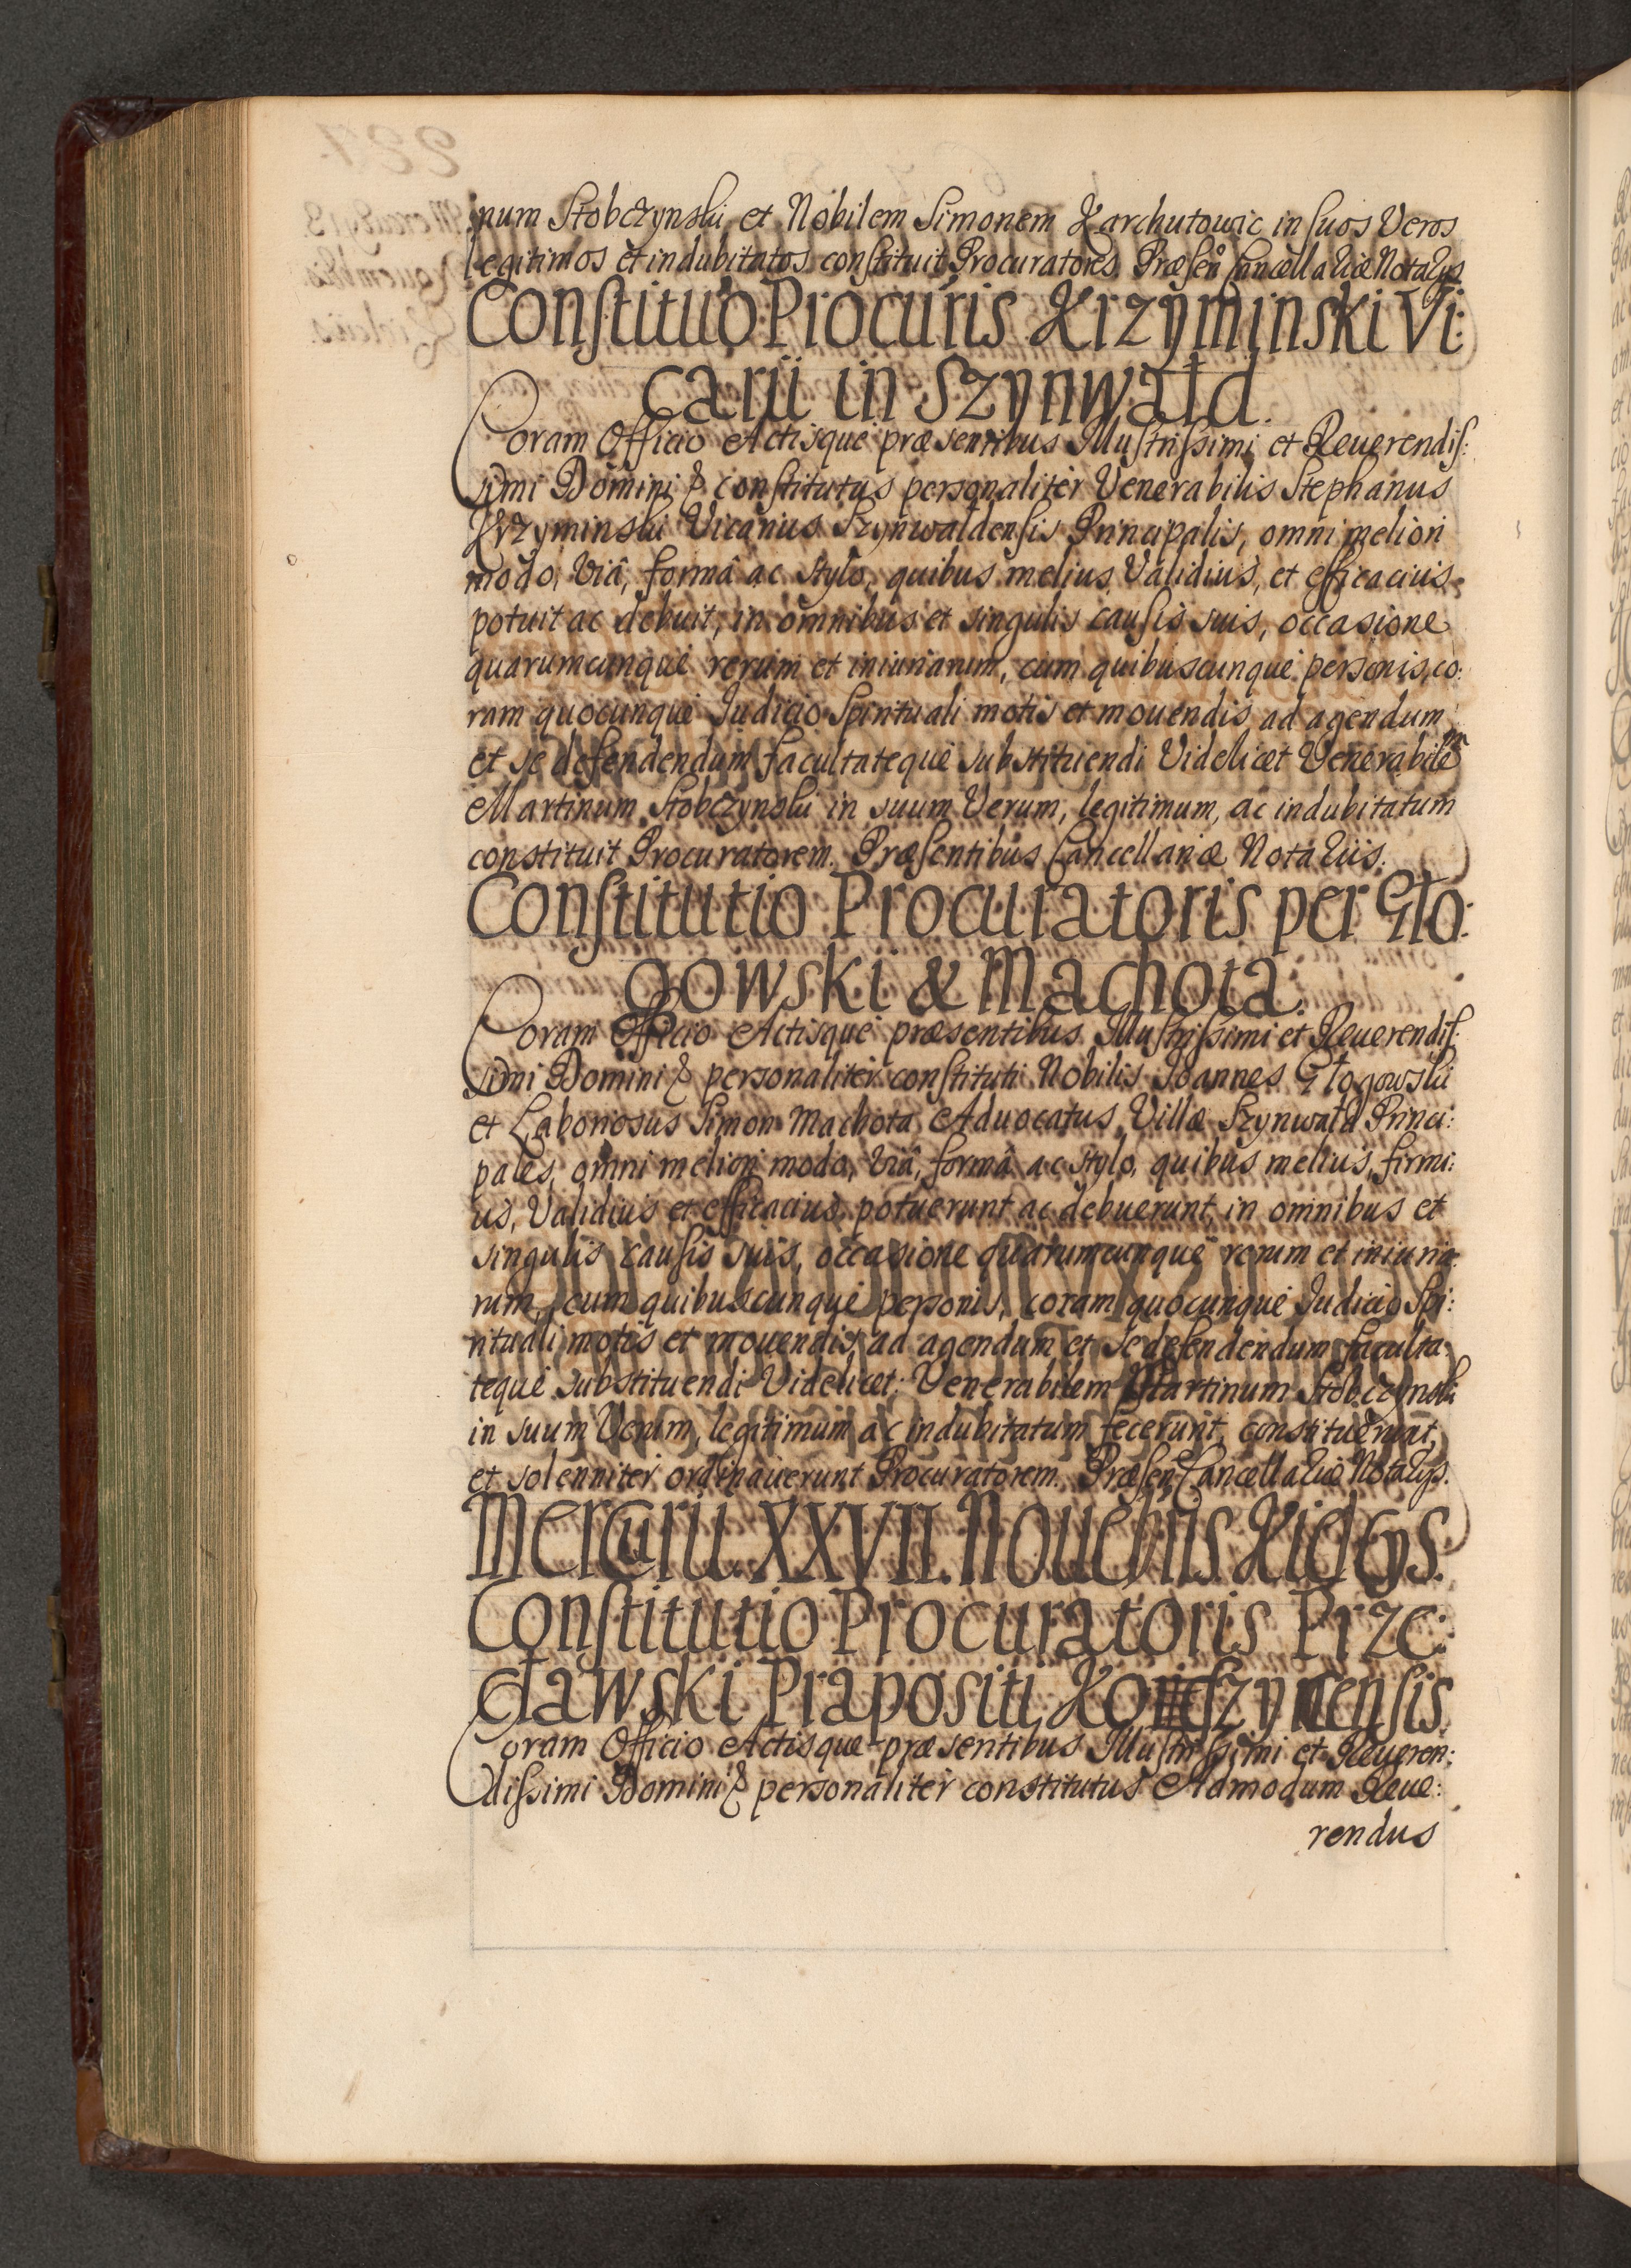 num Stobczynski et Nobilem Simonem Karchutowic in suos Veros
legitimos et indubitatos constituit Procuratores. Præsen Cancellariæ Notarys
Constituo Procuris Krzyminski Vi:
carii in Szynwałd.
Coram Officio Actisque præsentibus Illustrissimi et Reuerendis:
simi Domini & constitutus personaliter Venerabilis Stephanus
Krzyminski Vicarius Szynwaldensis Principalis, omni meliori
modo, Viâ, formâ ac stylo, quibus melius, Validius, et efficacius
potuit ac debuit, in omnibus et singulis causis suis, occasione
quarumcunque rerum et iniuriarum, cum quibuscunque personis, co:
ram quocunque Judicio Spirituali motis et mouendis ad agendum
et se defendendum facultateque substituendi Videlicet Venerabilem
Martinum Stobczynski in suum Verum, legitimum, ac indubitatum
constituit Procuratorem. Præsentibus Cancellariæ Notariis.
Constitutio Procuratoris per Gło:
gowski & Machota.
Coram Officio Actisque præsentibus Illustrissimi et Reuerendis:
simi Domini & personaliter constituti Nobilis Joannes Głogowski
et Laboriosus Simon Machota Aduocatus Villæ Szynwałd Princi:
pales, omni meliori modo, Viâ, formâ ac stylo, quibus melius, firmi:
us, Validius et efficacius, potuerunt ac debuerunt, in omnibus et
singulis causis suis, occasione quarumcunque rerum et iniuria:
rum, cum quibuscunque personis, coram quocunque Judicio Spi:
rituali motis et mouendis, ad agendum et se defendendum faculta:
teque substituendi Videlicet: Venerabilem Martinum Stobczynski
in suum Verum, legitimum ac indubitatum fecerunt, constituerunt,
et solenniter ordinauerunt Procuratorem. Præsen Cancellariæ Notarys.
Mercurii. XXVII. Nouebris Kielcys.
Constitutio Procuratoris Prze:
cławski Præpositi
Coram Officio Actisque præsentibus Illustrissimi et Reueren:
dissimi Domini & personaliter constitutus Admodum Reue:
rendus